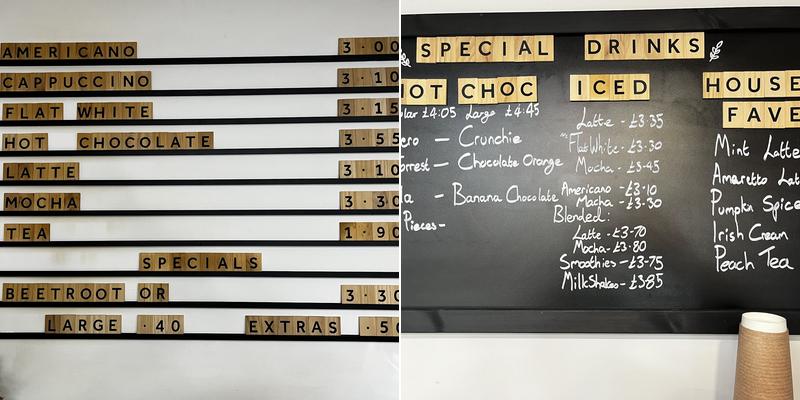 AMERICANO 3.00
CAPPUCCINO 3.10
FLAT WHITE 3.15
HOT CHOCOLATE 3.55
LATTE 3.10
MOCHA 3.30
TEA 1.90
SPECIALS
BEETROOT OR 3.30
LARGE .40 EXTRAS .50
SPECIAL DRINKS
HOT CHOC
lar £4.05 Large £4.45
ero — Crunchie
orrest — Chocolate Orange
a — Banana Chocolate
Pieces-
ICED
Latte - £3.35
Flat White - £3.30
Mocha - £3.45
Americano - £3.10
Mocha - £3.30
Blended:
Latte - £3.70
Mocha - £3.80
Smoothies - £3.75
MilkShakes - £3.85
HOUSE
FAVE
Mint Latte
Amaretto Lat
Pumpkn Spice
Irish Cream
Peach Tea